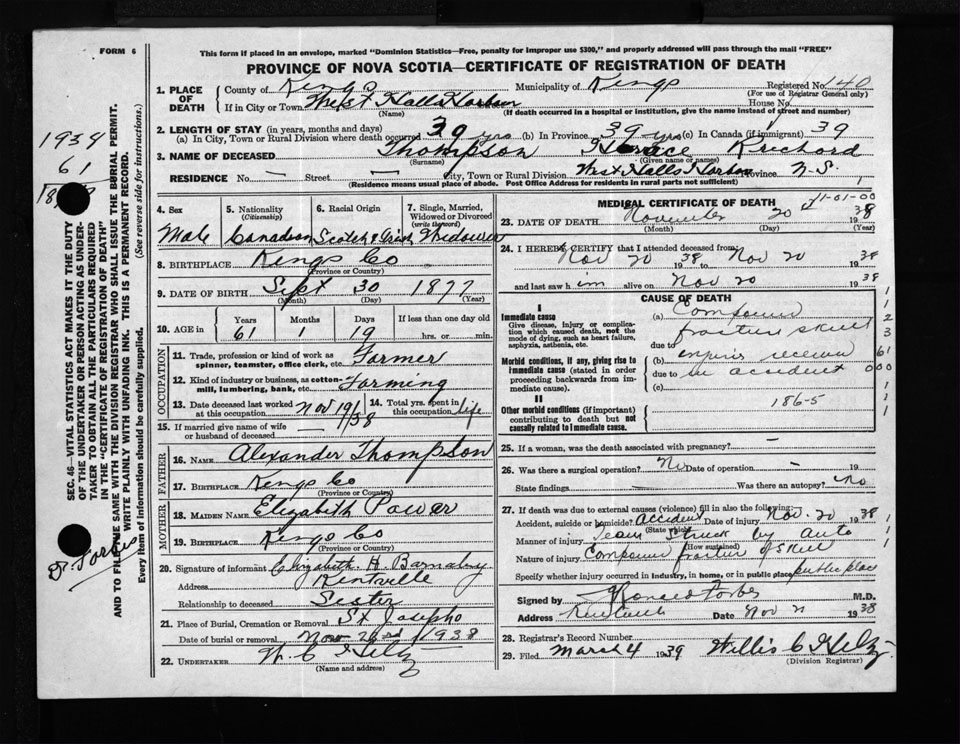 FORM 6
This form if placed in an envelope, marked "Dominion Statistics—Free, penalty for improper use $300," and properly addressed will pass through the mail "FREE"
PROVINCE OF NOVA SCOTIA—CERTIFICATE OF REGISTRATION OF DEATH
1. PLACE OF DEATH County of Kings Municipality of Kings Registered No. 140
(For use of Registrar General only)
If in City or Town West Halls Harbour House No.
(Name) (If death occurred in a hospital or institution, give the name instead of street and number)
2. LENGTH OF STAY (in years, months and days)
(a) In City, Town or Rural Division where death occurred 39 yrs (b) In Province 39 yrs (c) In Canada (if immigrant) 39
3. NAME OF DECEASED Thompson Horace
(Surname) (Given name or names)
RESIDENCE No. — Street — City, Town or Rural Division West Halls Harbour Province N.S.
(Residence means usual place of abode. Post Office Address for residents in rural parts not sufficient)
4. Sex Male
5. Nationality (Citizenship) Canadian
6. Racial Origin Scotch & Irish
7. Single, Married, Widowed or Divorced (write the word) Widower
8. BIRTHPLACE Kings Co
(Province or Country)
9. DATE OF BIRTH Sept 30 1877
(Month) (Day) (Year)
10. AGE in Years Months Days If less than one day old
61 1 19 hrs. or min.
OCCUPATION
11. Trade, profession or kind of work as spinner, teamster, office clerk, etc. Farmer
12. Kind of industry or business, as cotton-mill, lumbering, bank, etc. Farming
13. Date deceased last worked at this occupation Nov 19/38 14. Total yrs. spent in this occupation life
15. If married give name of wife or husband of deceased
FATHER
16. NAME Alexander Thompson
17. BIRTHPLACE Kings Co
(Province or Country)
MOTHER
18. MAIDEN NAME Elizabeth Power
19. BIRTHPLACE Kings Co
(Province or Country)
20. Signature of informant Elizabeth H. Barnaby
Address Kentville
Relationship to deceased Sister
21. Place of Burial, Cremation or Removal St Josephs
Date of burial or removal Nov 23rd 1938
22. UNDERTAKER W. C. Hiltz
(Name and address)
MEDICAL CERTIFICATE OF DEATH
11-01-00
23. DATE OF DEATH November 20 1938
(Month) (Day) (Year)
24. I HEREBY CERTIFY that I attended deceased from:
Nov 20 1938 to Nov 20 1938
and last saw him alive on Nov 20 1938
CAUSE OF DEATH
I
Immediate cause
Give disease, injury or complication which caused death, not the mode of dying, such as heart failure, asphyxia, asthenia, etc.
Morbid conditions, if any, giving rise to immediate cause (stated in order proceeding backwards from immediate cause).
II
Other morbid conditions (if important) contributing to death but not causally related to immediate cause.
(a) Compound
fracture skull
due to
(b) injuries received
due to in accident
(c)
186-5
25. If a woman, was the death associated with pregnancy? —
26. Was there a surgical operation? No Date of operation — 19
State findings Was there an autopsy? No
27. If death was due to external causes (violence) fill in also the following:
Accident, suicide or homicide? Accident Date of injury Nov. 20 1938
(State which)
Manner of injury Team struck by auto
(How sustained)
Nature of injury Compound fracture of skull
Specify whether injury occurred in industry, in home, or in public place public place
Signed by Forbes M.D.
Address Date Nov 1938
28. Registrar's Record Number
29. Filed March 4 1939 Willis C Hiltz
(Division Registrar)
SEC. 46—VITAL STATISTICS ACT MAKES IT THE DUTY OF THE UNDERTAKER OR PERSON ACTING AS UNDERTAKER TO OBTAIN ALL THE PARTICULARS REQUIRED IN THE "CERTIFICATE OF REGISTRATION OF DEATH" AND TO FILE THE SAME WITH THE DIVISION REGISTRAR WHO SHALL ISSUE THE BURIAL PERMIT.
WRITE PLAINLY WITH UNFADING INK. THIS IS A PERMANENT RECORD.
Every item of information should be carefully supplied. (See reverse side for instructions.)
61
Dr Forbes